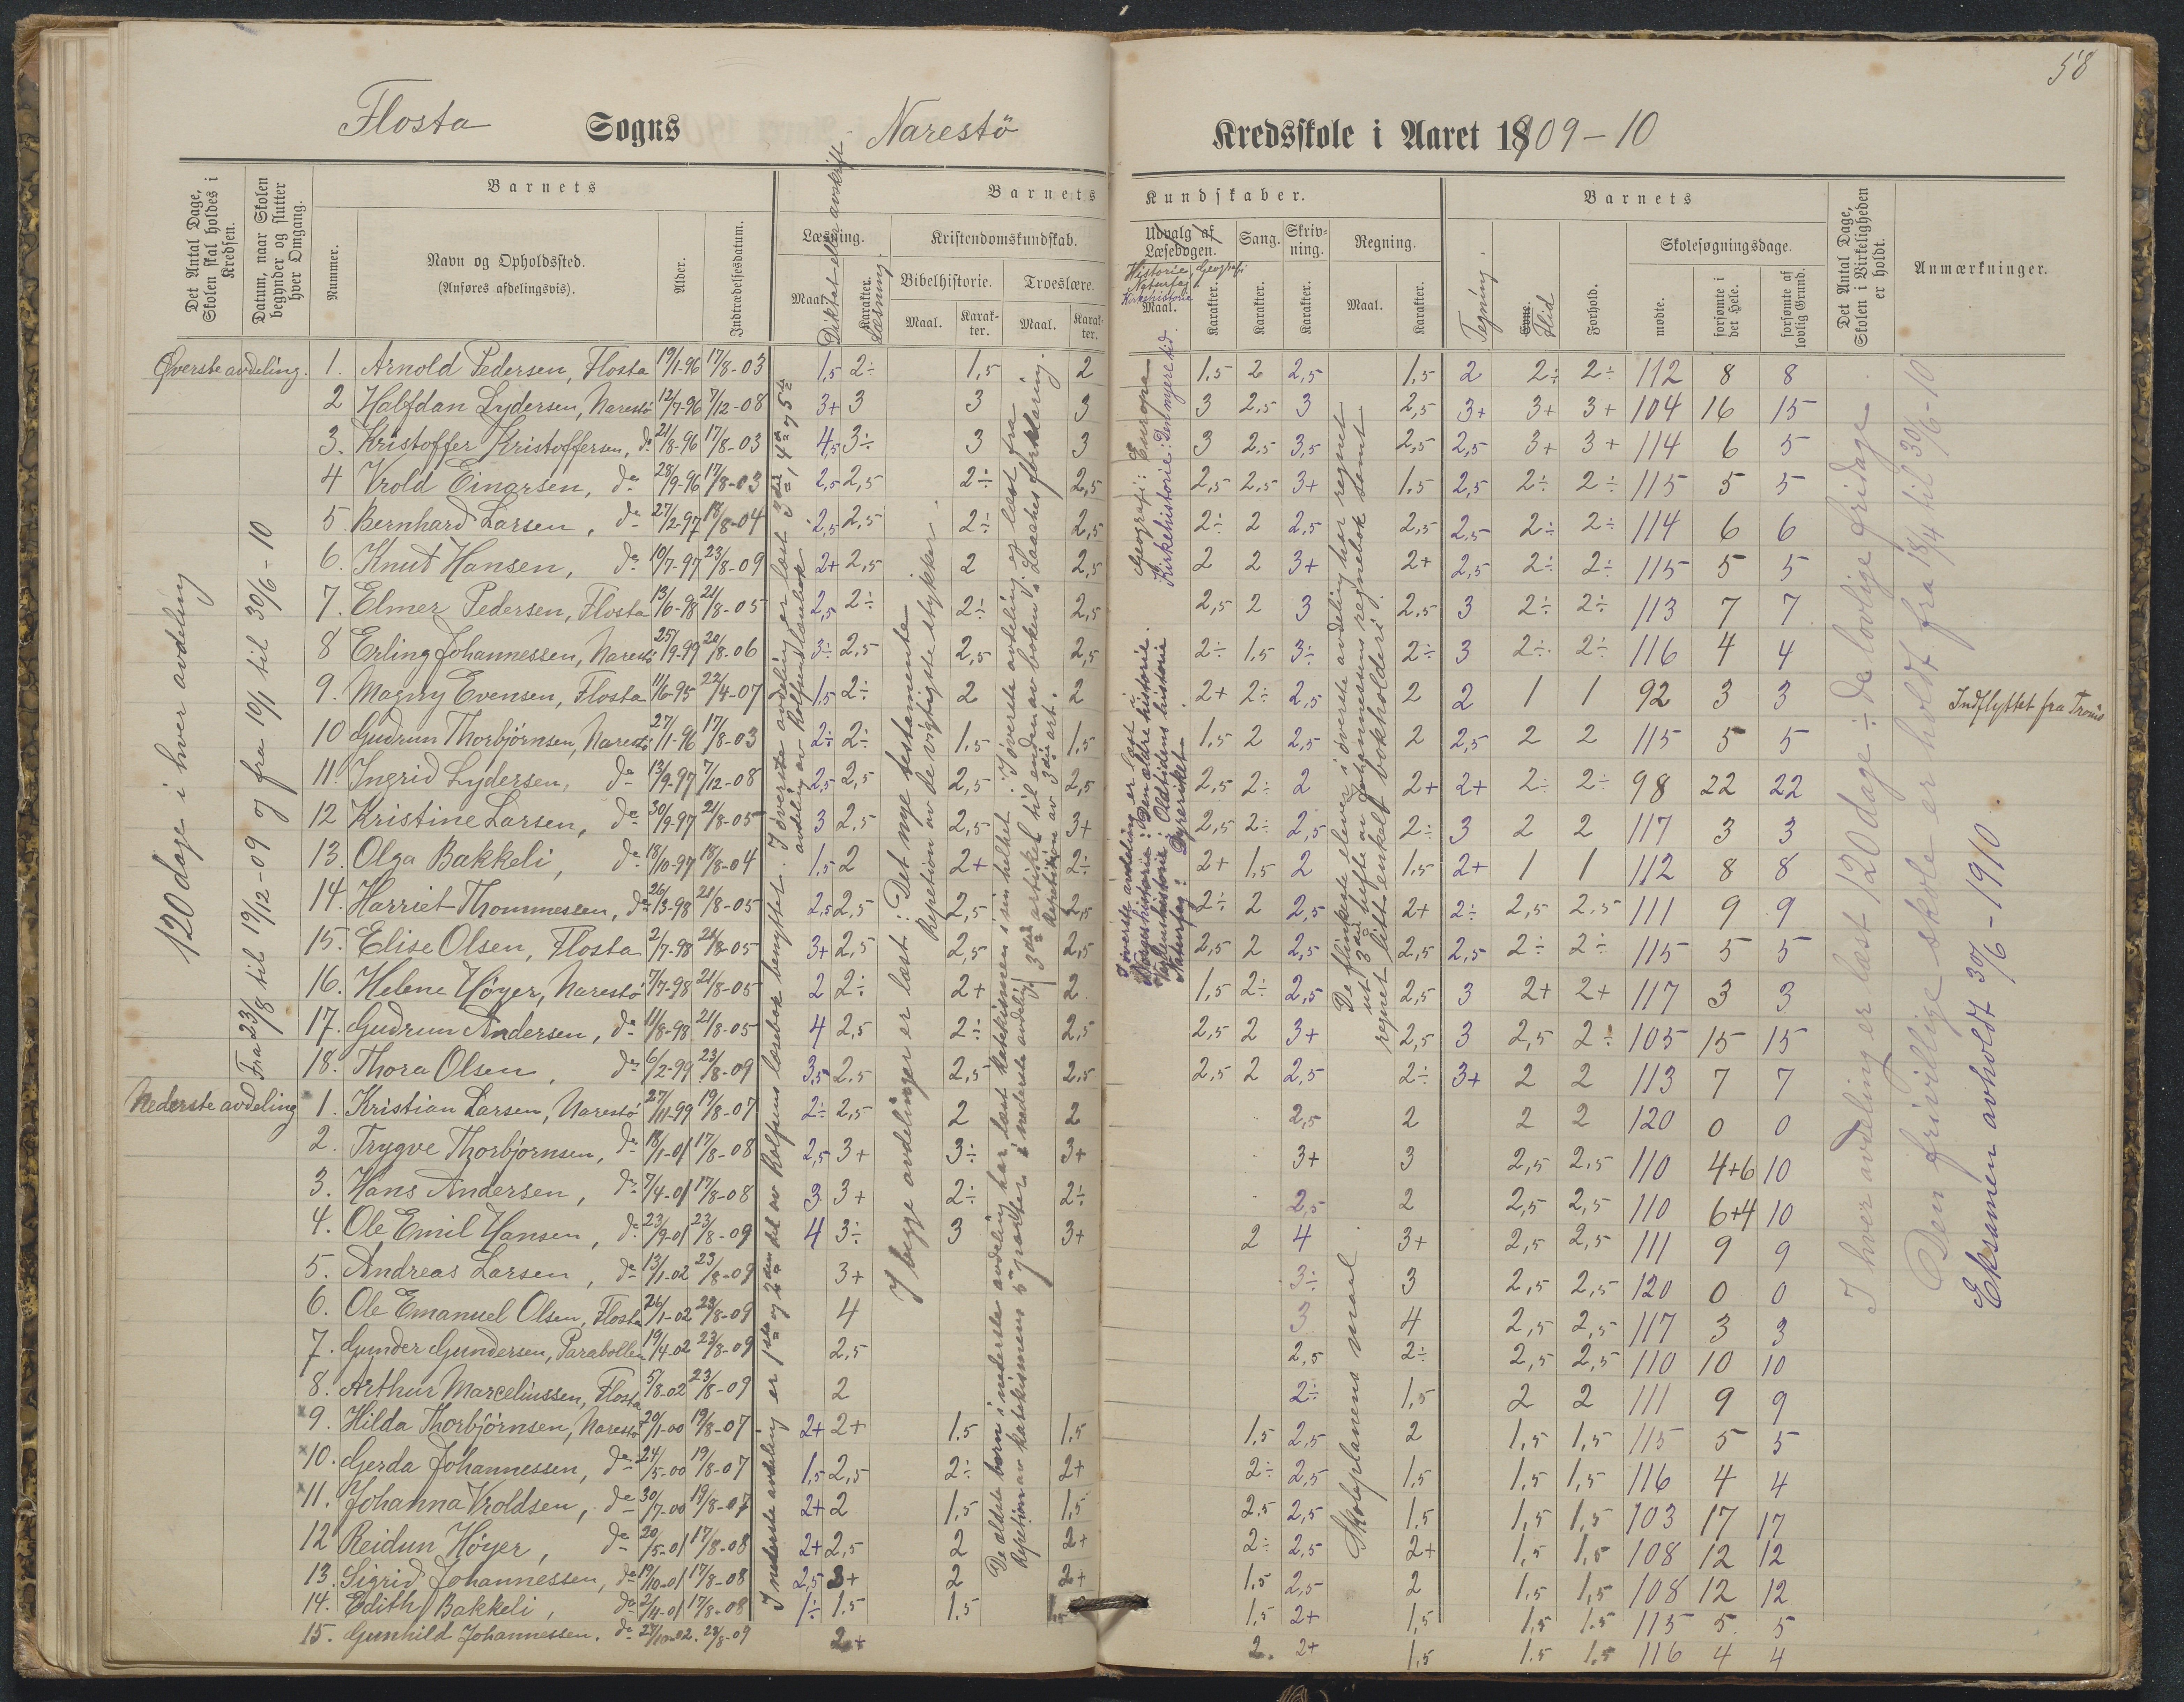 58
Flosta Sogns Narestö Kredsskole i Aaret 1909-10
Det Antal Dage, Skolen skal holdes i Kredsen.
Datum, naar Skolen begynder og slutter hver Omgang.
Barnets
Nummer.
Navn og Opholdssted.
(Anføres afdelingsvis).
Alder.
Indtrædelsesdatum.
Barnets Kundskaber.
Læsning.
Maal.
Diktat eller avskrift
Karakter.
Læsning.
Kristendomskundskab.
Bibelhistorie.
Maal.
Karakter.
Troeslære.
Maal.
Karakter.
Udvalg af Læsebogen.
Historie, Geografi
Naturfag
Kirkehistorie
Maal.
Karakter.
Sang.
Karakter.
Skrivning.
Karakter.
Regning.
Maal.
Karakter.
Barnets
Tegning.
Evne.
Flid
Forhold.
Skolesøgningsdage.
mødte.
forsømte i det Hele.
forsømte af lovlig Grund.
Det Antal Dage, Skolen i Virkeligheden er holdt.
Anmærkninger.
120 dage i hver avdeling
Fra 23/8 til 19/12-09 og fra 10/1 til 30/6-10
Øverste avdeling. 1. Arnold Pedersen, Flosta 19/1-96 17/8-03 1,5 2÷ 1,5 2 1,5 2 2,5 1,5 2 2÷ 2÷ 112 8 8
2 Halfdan Lydersen, Narestö 12/7-96 7/12-08 3+ 3 3 3 3 2,5 3 2,5 3+ 3+ 3+ 104 16 15
3. Kristoffer Kristoffersen, do 21/8-96 17/8-03 4,5 3÷ 3 3 3 2,5 3,5 2,5 2,5 3+ 3+ 114 6 5
4 Vrold Einarsen, do 28/9-96 17/8-03 2,5 2,5 2÷ 2,5 2,5 2,5 3+ 1,5 2,5 2÷ 2÷ 115 5 5
5. Bernhard Larsen, do 27/2-97 18/8-04 2,5 2,5 2÷ 2,5 2÷ 2 2,5 2,5 2,5 2÷ 2÷ 114 6 6
6. Knut Hansen, do 10/7-97 23/8-09 2+ 2,5 2 2,5 2 2 3+ 2+ 2,5 2÷ 2÷ 115 5 5
7. Elmer Pedersen, Flosta 13/6-98 21/8-05 2,5 2÷ 2÷ 2,5 2,5 2 3 2,5 3 2÷ 2÷ 113 7 7
8 Erling Johannessen, Narestö 25/9-99 20/8-06 3÷ 2,5 2,5 2,5 2÷ 1,5 3÷ 2÷ 3 2÷ 2÷ 116 4 4
9. Magny Evensen, Flosta 11/6-95 22/4-07 1,5 2÷ 2 2 2+ 2÷ 2,5 2 2 1 1 92 3 3 Indflyttet fra Tromö
10 Gudrun Thorbjörnsen, Narestö 27/11-96 17/8-03 2÷ 2÷ 1,5 1,5 1,5 2 2,5 2 2,5 2 2 115 5 5
11. Ingrid Lydersen, do 13/9-97 7/12-08 2,5 2,5 2,5 2,5 2,5 2÷ 2 2+ 2+ 2÷ 2÷ 98 22 22
12 Kristine Larsen, do 30/9-97 21/8-05 3 2,5 2,5 3+ 2,5 2÷ 2,5 2÷ 3 2 2 117 3 3
13. Olga Bakkeli, do 18/10-97 18/8-04 1,5 2 2+ 2÷ 2+ 1,5 2 1,5 2+ 1 1 112 8 8
14. Harriet Thommesen, do 26/3-98 21/8-05 2,5 2,5 2,5 2,5 2÷ 2 2,5 2+ 2÷ 2,5 2,5 111 9 9
15. Elise Olsen, Flosta 2/7-98 21/8-05 3+ 2,5 2,5 2,5 2,5 2 2,5 2,5 2,5 2÷ 2÷ 115 5 5
16. Helene Höyer, Narestö 7/7-98 21/8-05 2 2÷ 2+ 2 1,5 2÷ 2,5 2,5 3 2+ 2+ 117 3 3
17. Gudrun Andersen, do 11/8-98 21/8-05 4 2,5 2÷ 2,5 2,5 2 3+ 2,5 3 2,5 2÷ 105 15 15
18. Thora Olsen, do 6/2-99 23/8-09 3,5 2,5 2,5 2,5 2,5 2 2,5 2÷ 3+ 2 2 113 7 7
Nederste avdeling 1. Kristian Larsen, Narestö 27/11-99 19/8-07 2÷ 2,5 2 2 2,5 2 2 2 120 0 0
2. Trygve Thorbjörnsen, do 18/1-01 17/8-08 2,5 3+ 3÷ 3+ 3+ 3 2,5 2,5 110 4+6 10
3. Hans Andersen, do 7/4-01 17/8-08 3 3+ 2÷ 2÷ 2,5 2 2,5 2,5 110 6+4 10
4. Ole Emil Hansen, do 23/9-01 23/8-09 4 3÷ 3 3+ 2 4 3+ 2,5 2,5 111 9 9
5. Andreas Larsen, do 13/1-02 23/8-09 3+ 3÷ 3 2,5 2,5 120 0 0
6. Ole Emanuel Olsen, Flosta 26/1-02 23/8-09 4 3 4 2,5 2,5 117 3 3
7. Gunder Gundersen, Parabollen 19/4-02 23/8-09 2,5 2,5 2÷ 2,5 2,5 110 10 10
8. Arthur Marceliussen, Flosta 5/8-02 23/8-09 2 2÷ 1,5 2 2 111 9 9
9. Hilda Thorbjörnsen, Narestö 20/1-00 19/8-07 2+ 2+ 1,5 1,5 1,5 2,5 2 1,5 1,5 115 5 5
10. Gerda Johannessen, do 24/5-00 19/8-07 1,5 2,5 2÷ 2+ 2÷ 2,5 1,5 1,5 1,5 116 4 4
11. Johanna Vroldsen, do 30/7-00 19/8-07 2+ 2 1,5 1,5 2,5 2,5 1,5 1,5 1,5 103 17 17
12 Reidun Höyer, do 20/5-01 17/8-08 2+ 2,5 2 2+ 2÷ 2,5 2+ 1,5 1,5 108 12 12
13. Sigrid Johannessen, do 19/10-01 17/8-08 2,5 3+ 2 2+ 1,5 2,5 2 1,5 1,5 108 12 12
14. Edith Bakkeli, do 2/11-01 17/8-08 1÷ 1,5 1,5 1,5 1,5 2+ 1,5 1,5 1.5 115 5 5
15. Gunhild Johannessen. do 27/10-02. 23/8-09 2+ 2. 2+ 1,5 1.5 1,5 116 4 4
I nederste avdeling er 1ste og 2den del av Rolfsens læsebok benyttet. I överste avdeling er læst 3die, 4de og 5te
avdeling av Rolfsens læsebok
I begge avdelinger er læst: Det nye testamente
Repetion av de vigtigste stykker.
De ældste barn i nederste avdeling har læst katekismen i sin helhet. I överste avdeling er læst fra
3die artikel til enden av boken i Laaches forklaring.
Repetion av katekismens 5 parter i nederste avdeling
Repetition av 3die art.
I överste avdeling er læst i
Norgeshistorie: Den ældre historie.
Verdenshistorie: Oldtidens historie
Naturfag: Dyreriket
Geografi: Europa
Kirkehistorie: Den nyere tid.
De flinkeste elever i överste avdeling har regnet
ut 3die hefte av Johannesens regnebok samt
regnet litt enkelt bokholderi.
Skoleplanens maal
I hver avdeling er læst 120 dage ÷ de lovlige fridage
Den frivillige skole er holdt fra 18/4 til 30/6-10
Eksamen avholdt 30/6-1910.